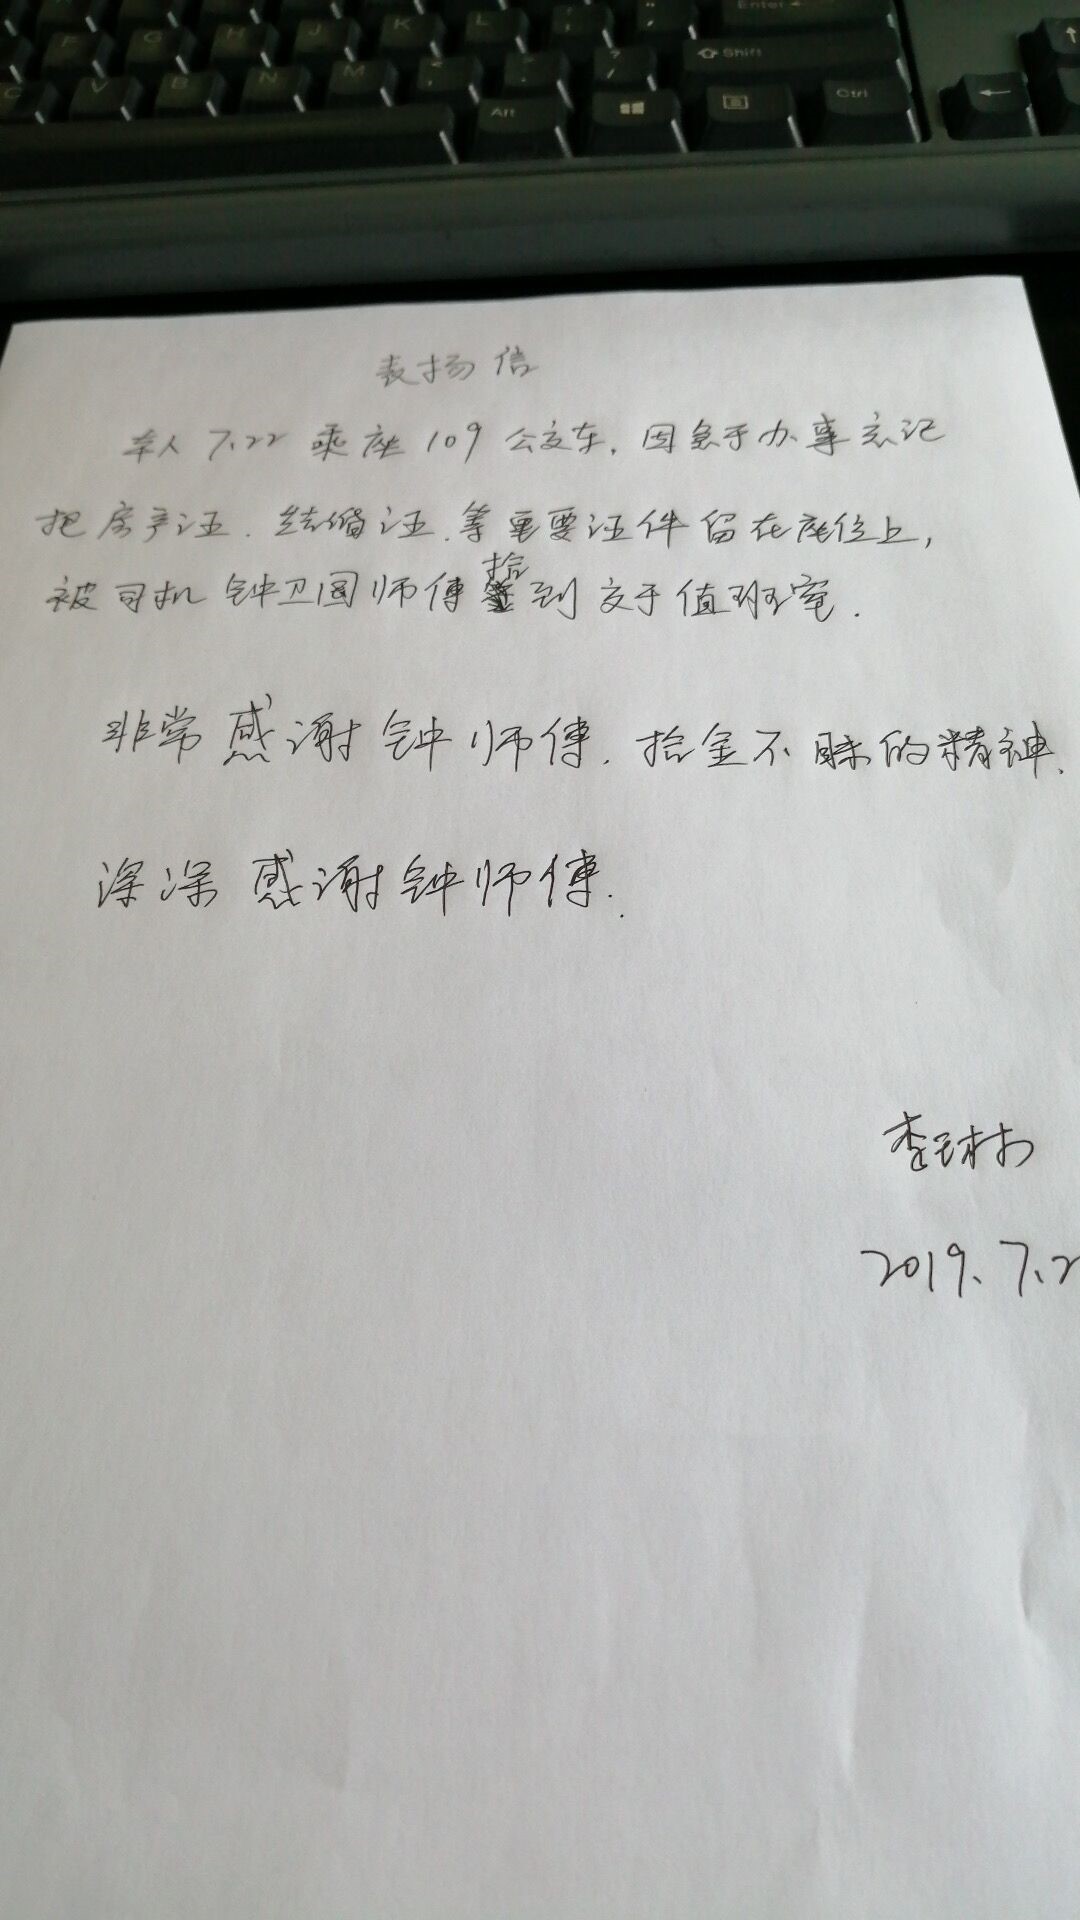 F G H J K L Enter
C V B N M Shift
Alt Ctrl
表扬信
本人 7.22 乘座 109 公交车,因急于办事忘记
把房产证.结婚证.等重要证件留在座位上,
被司机钟卫国师傅拾到交于值班室.
非常感谢钟师傅.拾金不昧的精神.
深深感谢钟师傅.
2019.7.2